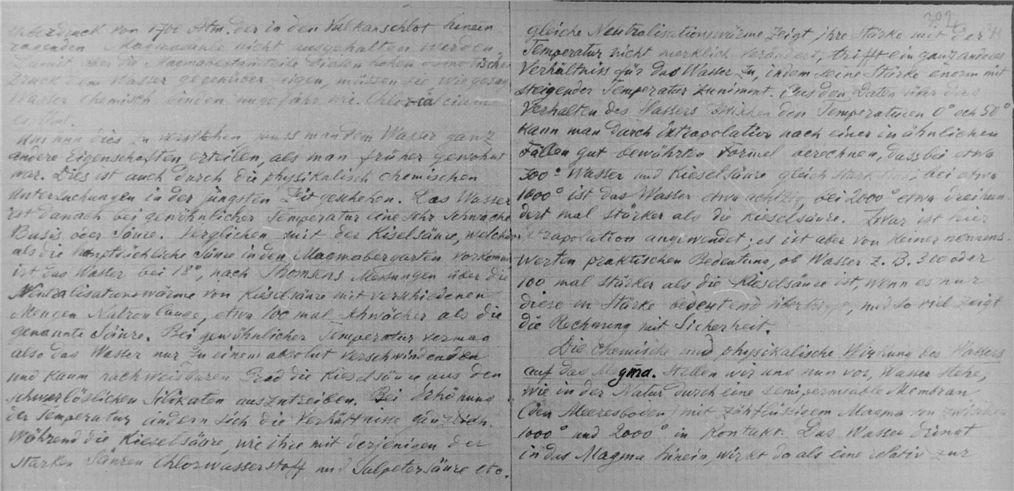 überdruck von 1700 Atm. der in den Vulkanschlot hinein
ragenden Magmasäule nicht ausgehalten werden.
Damit aber die Magmabestandteile diesen hohen osmotischen
Druck dem Wasser gegenüber zeigen, müssen sie wie gesagt
Wasser chemisch binden ungefähr wie Chlorcalcium
es tut.
Um nun dies zu verstehen muss man dem Wasser ganz
andere Eigenschaften erteilen, als man früher gewohnt
war. Dies ist auch durch die physikalisch chemischen
Untersuchungen in der jüngsten Zeit geschehen. Das Wasser
ist danach bei gewöhnlicher Temperatur eine sehr schwache
Basis oder Säure. Verglichen mit der Kieselsäure, welche
als die hauptsächliche Säure in den Magmabergarten vorkommt
ist das Wasser bei 18°, nach Thomsens Messungen über die
Neutralisationswärme von Kieselsäure mit verschiedenen
Mengen Natronlauge, etwa 100 mal schwächer als die
genannte Säure. Bei gewöhnlicher Temperatur vermag
also das Wasser nur zu einem absolut verschwindenden
und kaum nachweisbaren Grad die Kieselsäure aus den
schwerlöslichen Silikaten auszutreiben. Bei Erhöhung
der Temperatur ändern sich die Verhältnisse gänzlich.
Während die Kieselsäure, wie ihre mit derjenigen der
starken Säuren Chlorwasserstoff und Salpetersäure etc.
gleiche Neutralisationswärme zeigt, ihre Stärke mit der
Temperatur nicht merklich verändert, trifft ein ganz anderes
Verhältniss für das Wasser zu, indem seine Stärke enorm mit
steigender Temperatur zunimmt. Aus den Daten über das
Verhalten des Wassers zwischen den Temperaturen 0° och 50°
kann man durch Extrapolation nach einer in ähnlichen
Fällen gut bewährten Formel berechnen, dass bei etwa
300° Wasser und Kieselsäure gleich stark sind; bei etwa
1000° ist das Wasser etwa achtzig, bei 2000° etwa dreihun-
dert mal stärker als die Kieselsäure. Zwar ist hier
Extrapolation angewendet; es ist aber von keiner nennens-
werten praktischen Bedeutung, ob Wasser z. B. 300 oder
100 mal stärker als die Kieselsäure ist, wenn es nur
diese in Stärke bedeutend überbietet, und so viel zeigt
die Rechnung mit Sicherheit.
Die chemische und physikalische Wirkung des Wassers
auf das Magma. Stellen wir uns nun vor, Wasser stehe,
wie in der Natur durch eine semipermeable Membran
(den Meeresboden) mit zähflüssigem Magma von zwischen
1000° und 2000° in Kontakt. Das Wasser dringt
in das Magma hinein, wirkt da als eine relativ zur